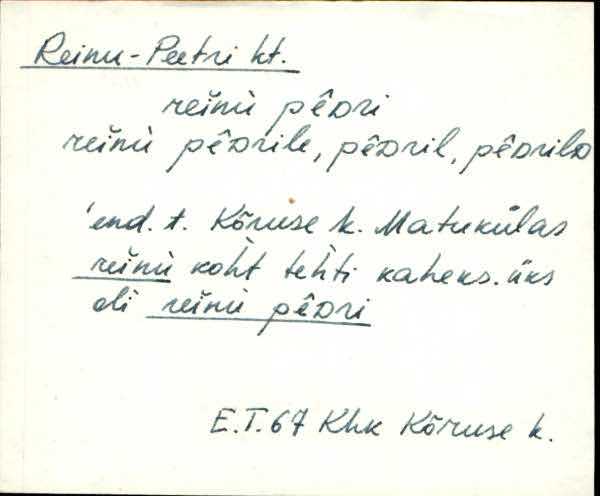 Reinu-Peetri kt.
rei̯nù pêᴅri
rei̯nù pêᴅrile, pêᴅril, pêᴅrilᴅ
'end. t. Kõruse k. Matukülas
rei̯nù koh̀t teh̀ti kaheks. üks
oli rei̯nù pêᴅri
E.T.67 Khk Kõruse k.